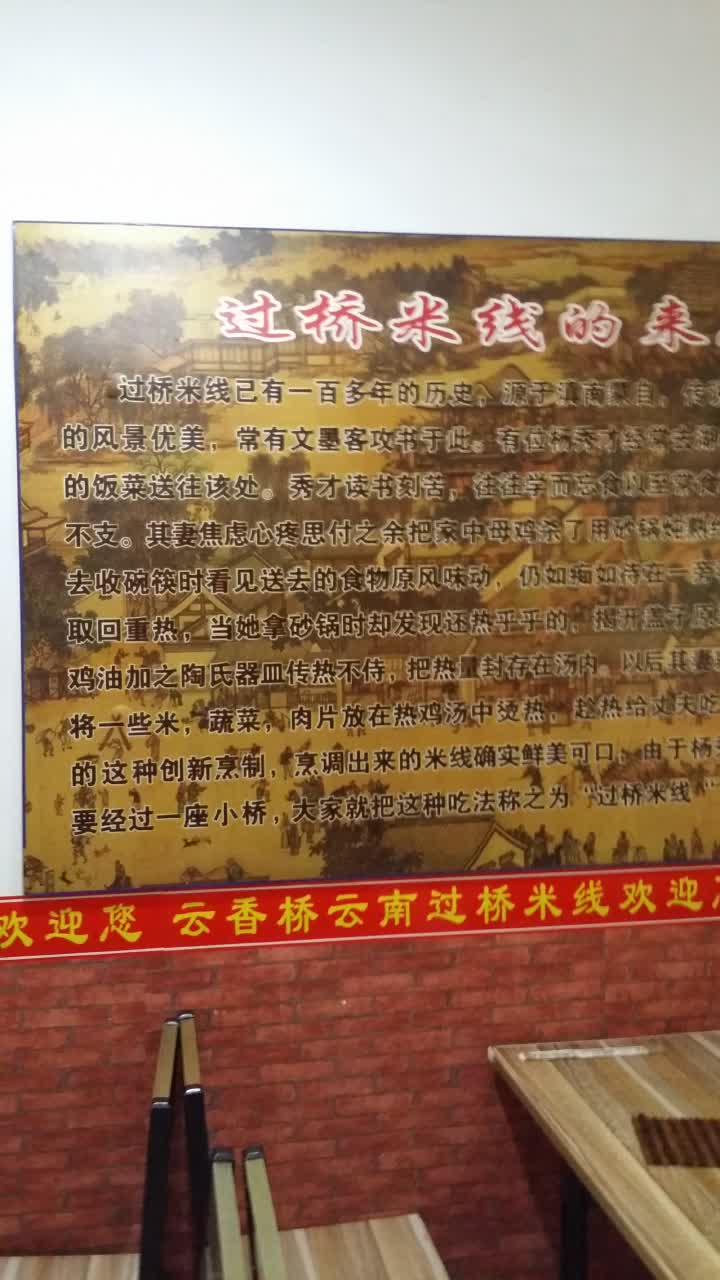 过桥米线的来
过桥米线已有一百多年的历史，源于滇南蒙自，传
的风景优美，常有文墨客攻书于此。有位杨秀才经常去湖
的饭菜送往该处。秀才读书刻苦，往往学而忘食以至常食
不支。其妻焦虑心疼思付之余把家中母鸡杀了用砂锅炖熟
去收碗筷时看见送去的食物原风味动，仍如痴如待在一旁
取回重热，当她拿砂锅时却发现还热乎乎的，揭开盖子原
鸡油加之陶氏器皿传热不侍，把热量封存在汤内。以后其妻
将一些米，蔬菜，肉片放在热鸡汤中烫热，趁热给丈夫吃
的这种创新烹制，烹调出来的米线确实鲜美可口，由于杨
要经过一座小桥，大家就把这种吃法称之为“过桥米线”
欢迎您 云香桥云南过桥米线欢迎